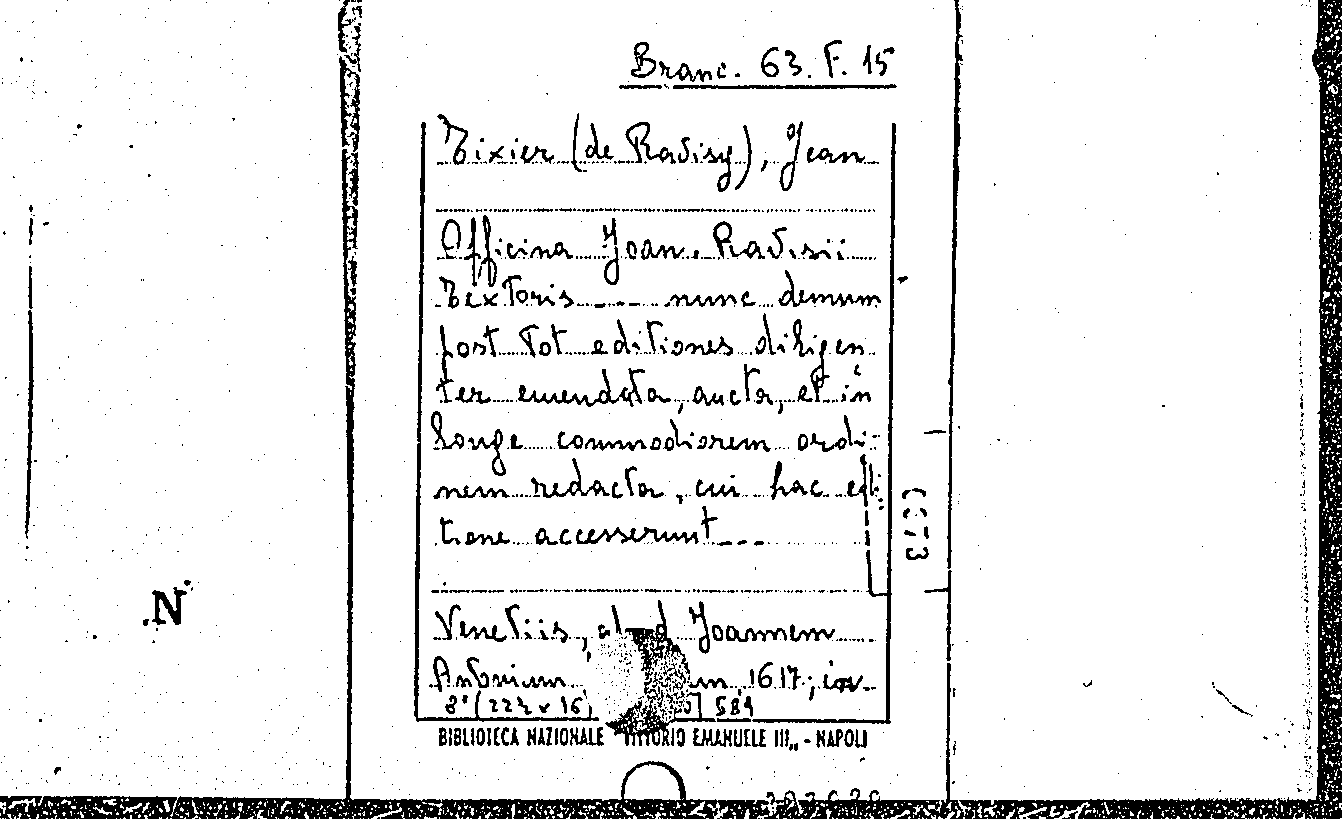 Branc. 63. F. 15
Tixier (de Ravisy), Jean
Officina Joan. Ravisii
Textoris --- nunc demum
post tot editiones diligen
ter emendata, aucta, et in
longe commodiorem ordi-
nem redacta, cui hac edi
tione accesserunt ---
Venetiis, apud Joannem
Antonium 1617; in-
8° (22
BIBLIOTECA NAZIONALE VITTORIO EMANUELE III,, - NAPOLI
N